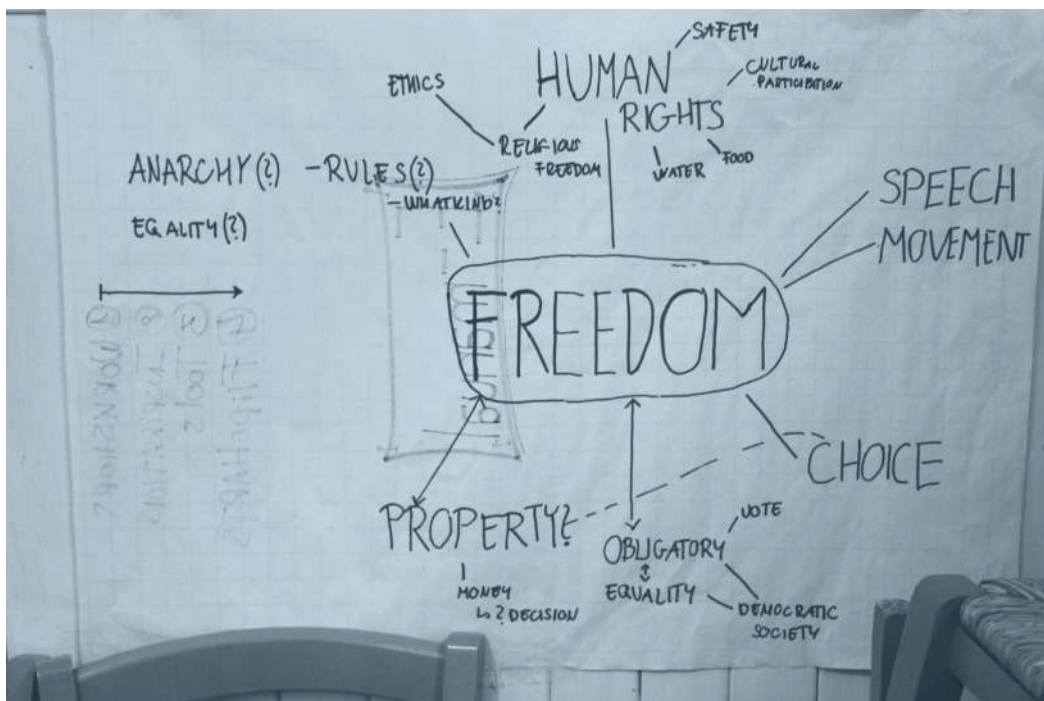 SAFETY
HUMAN
RIGHTS
CULTURAL
PARTICIPATION
ETHICS
RELIGIOUS
FREEDOM
WATER
FOOD
ANARCHY(?) - RULES(?)
- WHAT KIND?
EQALITY(?)
SPEECH
MOVEMENT
FREEDOM
CHOICE
PROPERTY?
MONEY
↳ ? DECISION
OBLIGATORY
VOTE
EQUALITY
DEMOCRATIC
SOCIETY